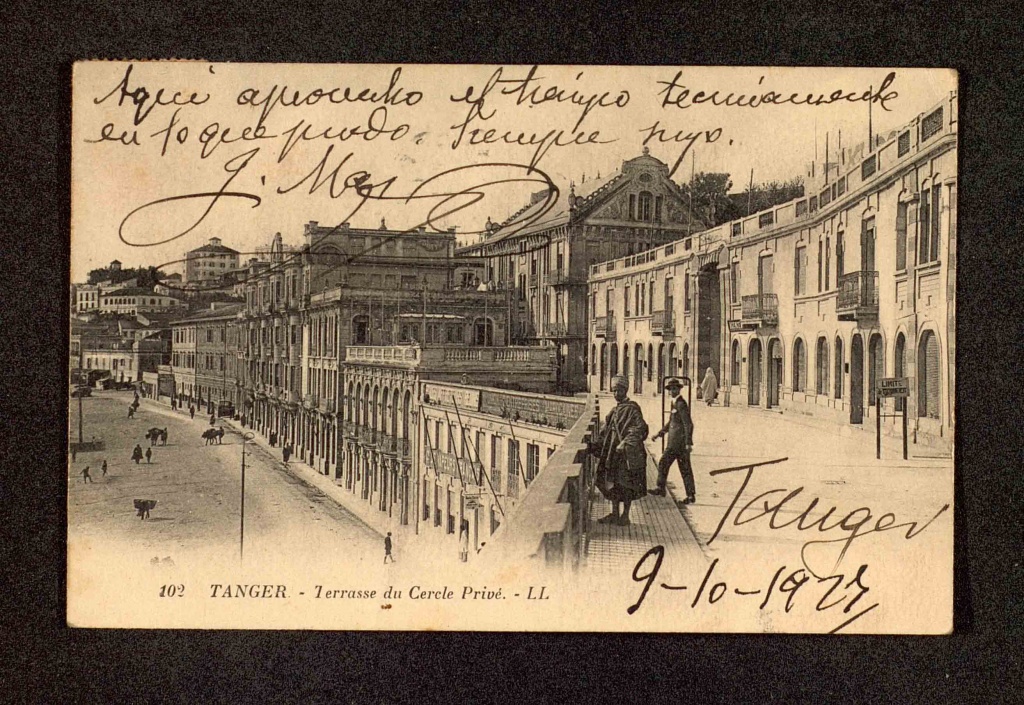 Aqui aprovecho el tiempo tecnicamente
en lo que puedo. Siempre suyo.
J. Mas
LIMITE
Tanger
9-10-1927
102 TANGER. - Terrasse du Cercle Privé. - LL